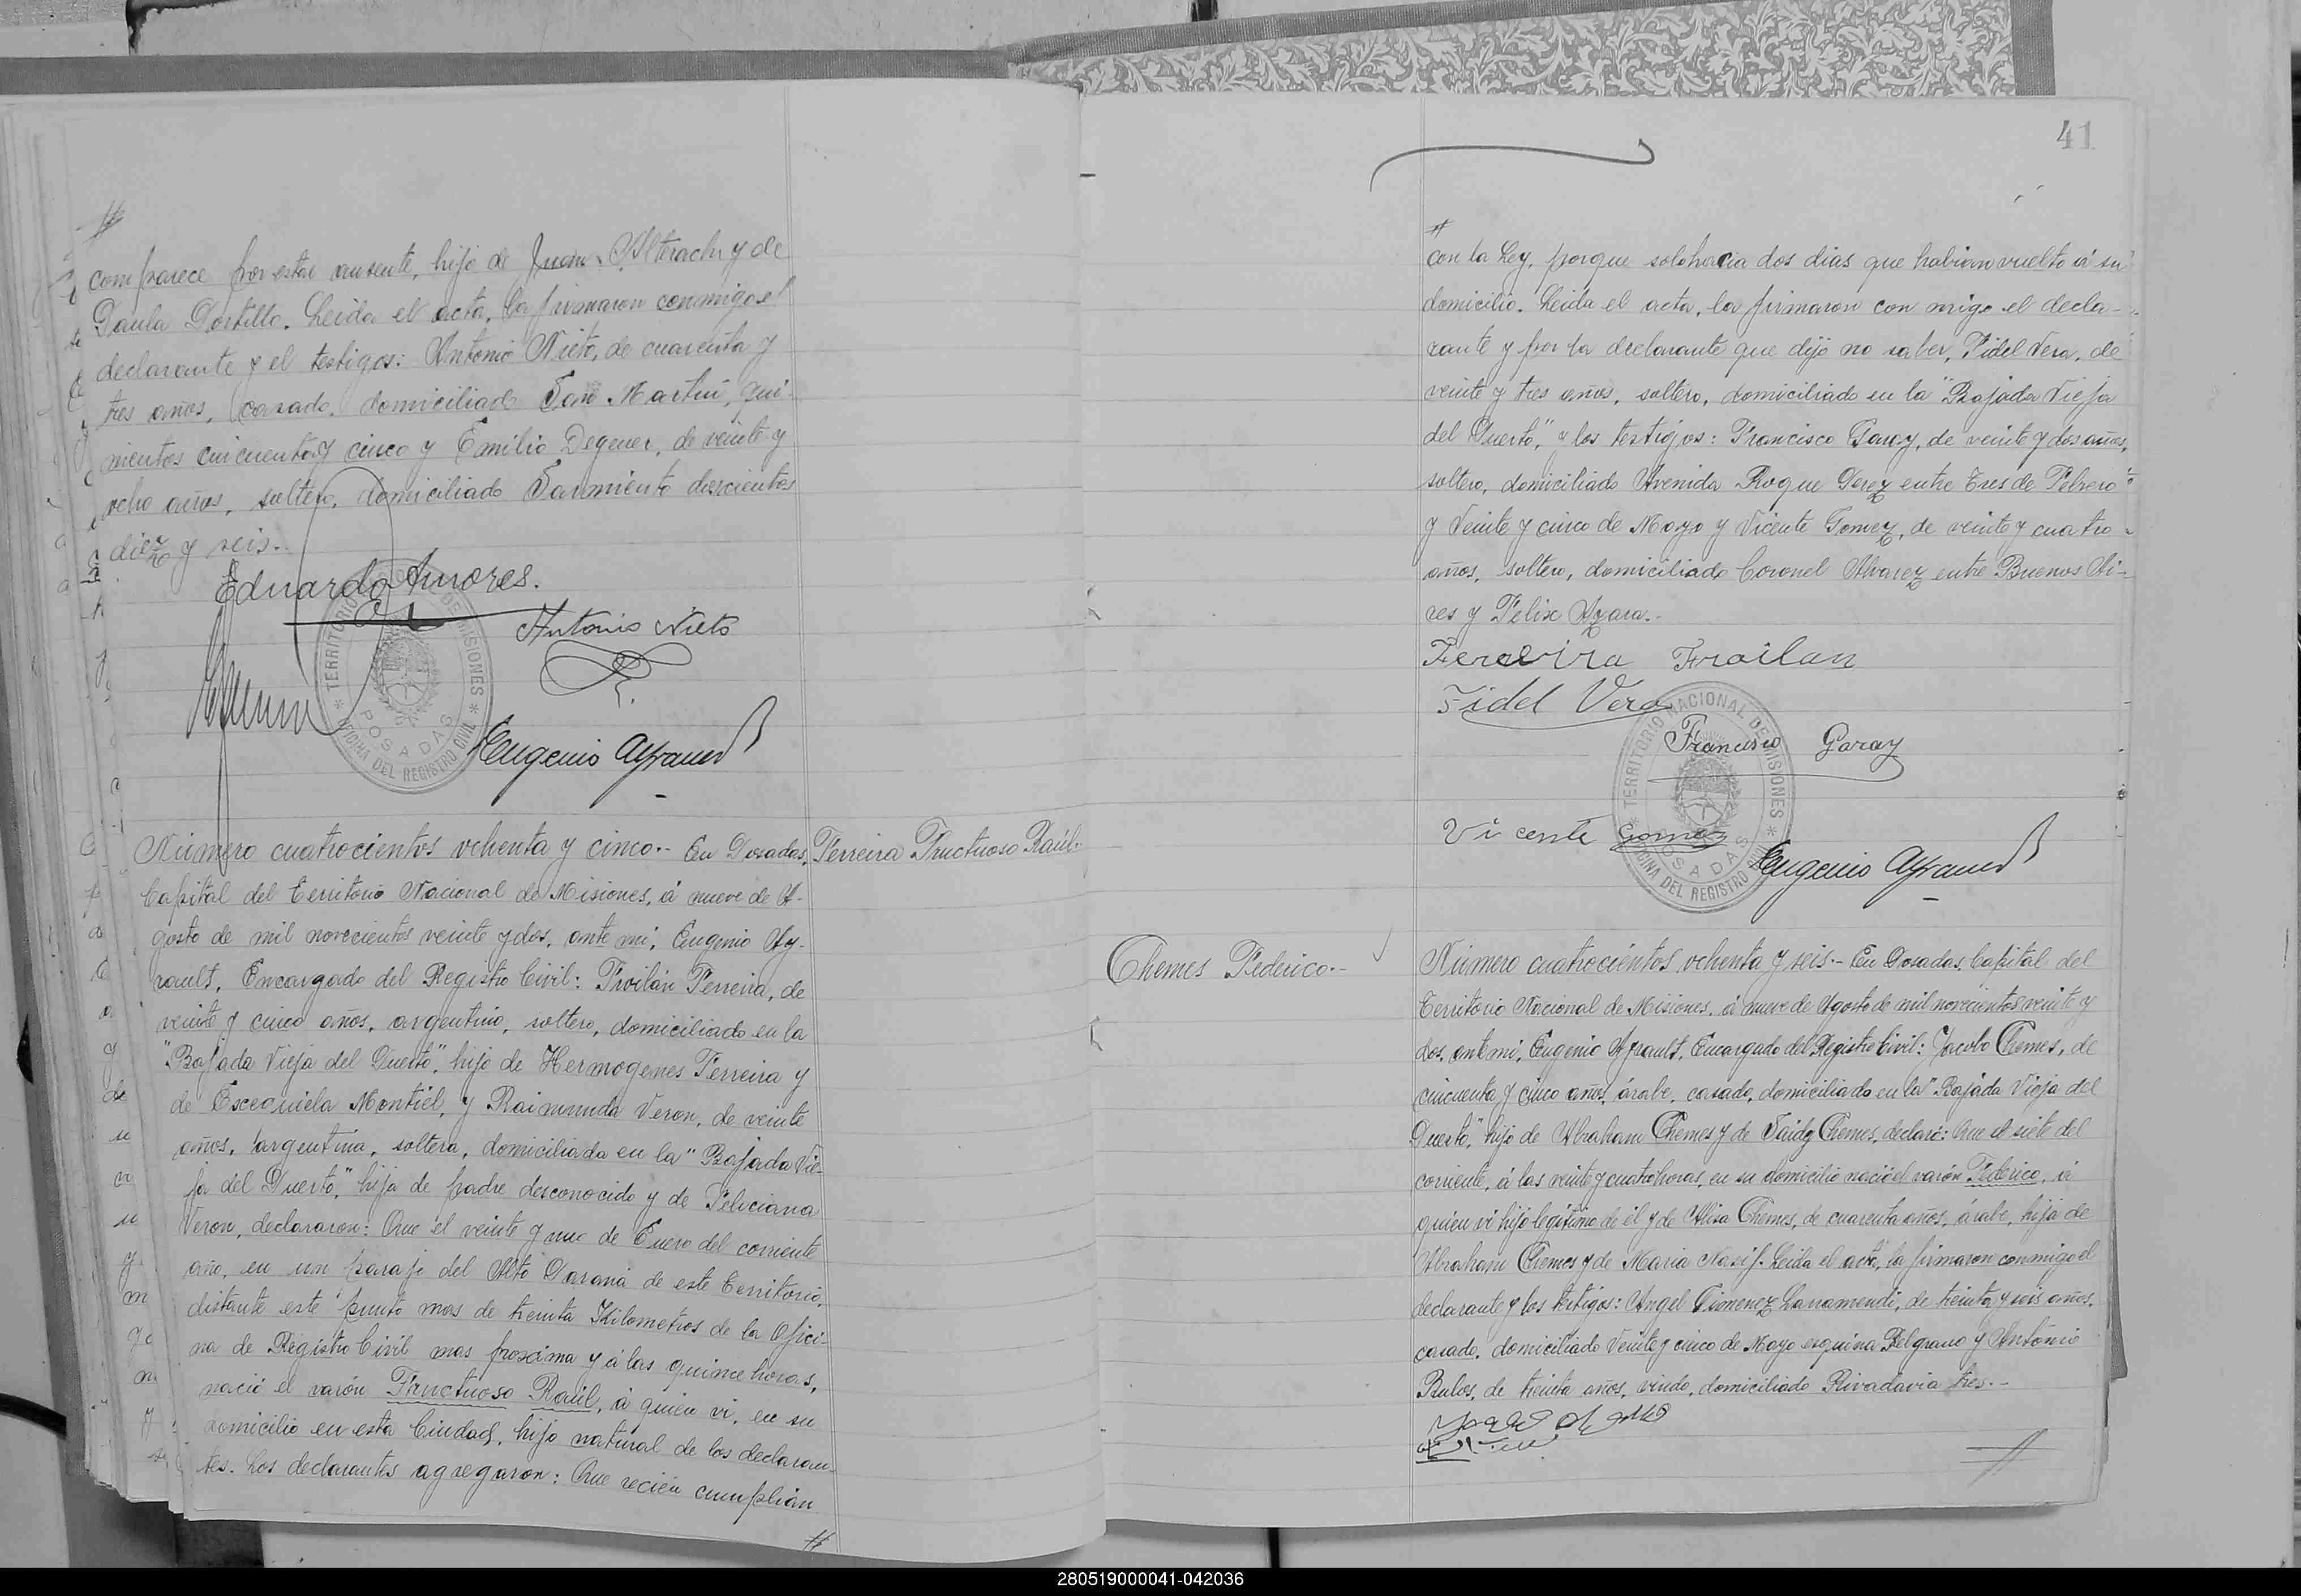 #
comparece por estar ausente, hijo de Juan Alterachy y de
Paula Portillo. Leida el acta, la firmaron conmigo el
declarante y el testigos: Antonio Nieto, de cuarenta y
tres años, casado, domiciliado San Martin, qui-
nientos cincuenta y cinco y Emilio Degener, de veinte y
ocho años, soltero, domiciliado Sarmiento doscientos
diez y seis.-
Eduardo Amores.
Antonio Nieto
TERRITORIO NACIONAL DE MISIONES
POSADAS
OFICINA DEL REGISTRO CIVIL
Eugenio Ayrault
Número cuatrocientos ochenta y cinco.- En Posadas,
Ferreira Fructuoso Raúl.-
Capital del Territorio Nacional de Misiones, á nueve de A-
gosto de mil novecientos veinte y dos, ante mi, Eugenio Ay-
rault, Encargado del Registro Civil: Froilán Ferreira, de
veinte y cinco años, argentino, soltero, domiciliado en la
"Bajada Vieja del Puerto", hijo de Hermogenes Ferreira y
de Escequiela Montiel, y Raimunda Veron, de veinte
años, argentina, soltera, domiciliada en la "Bajada Vie-
ja del Puerto," hija de padre desconocido y de Feliciana
Veron, declararon: Que el veinte y uno de Enero del corriente
año, en un paraje del Alto Paraná de este Territorio,
distante este punto mas de treinta Kilometros de la Ofici-
na de Registro Civil mas proxima y á las quince horas,
nació el varón Fructuoso Raúl, á quien vi, en su
domicilio en esta Ciudad, hijo natural de los declaran-
tes. Los declarantes agregaron: Que recién cumplian
#
41
#
con la Ley, porque solo hacia dos dias que habian vuelto á su
domicilio. Leida el acta, la firmaron con migo el decla-
rante y por la declarante que dijo no saber, Fidel Vera, de
veinte y tres años, soltero, domiciliado en la "Bajada Vieja
del Puerto," y los testigos: Francisco Garay, de veinte y dos años,
soltero, domiciliado Avenida Roque Perez entre Tres de Febrero
y Veinte y cinco de Mayo y Vicente Gomez, de veinte y cuatro
años, soltero, domiciliado Coronel Alvarez entre Buenos Ai-
res y Felix Azara.-
Fereira Froilan
Fidel Vera
Francisco Garay
TERRITORIO NACIONAL DE MISIONES
POSADAS
OFICINA DEL REGISTRO CIVIL
Vicente Gomez
Eugenio Ayrault
Chemes Federico.-
Número cuatrocientos ochenta y seis.- En Posadas, Capital del
Territorio Nacional de Misiones, á nueve de Agosto de mil novecientos veinte y
dos, ante mi, Eugenio Ayrault, Encargado del Registro Civil: Jacobo Chemes, de
cincuenta y cinco años, árabe, casado, domiciliado en la "Bajada Vieja del
Puerto," hijo de Abraham Chemes y de Saidy Chemes, declaró: Que el siete del
corriente, á las veinte y cuatro horas, en su domicilio nació el varón Federico, á
quien vi hijo legitimo de él y de Alisa Chemes, de cuarenta años, árabe, hija de
Abraham Chemes y de Maria Nasif. Leida el acta, la firmaron conmigo el
declarante y los testigos: Angel Gimenez Larramendi, de treinta y seis años,
casado, domiciliado Veinte y cinco de Mayo esquina Belgrano y Antonio
Bulos, de treinta años, viudo, domiciliado Rivadavia tres.-
#
280519000041-042036